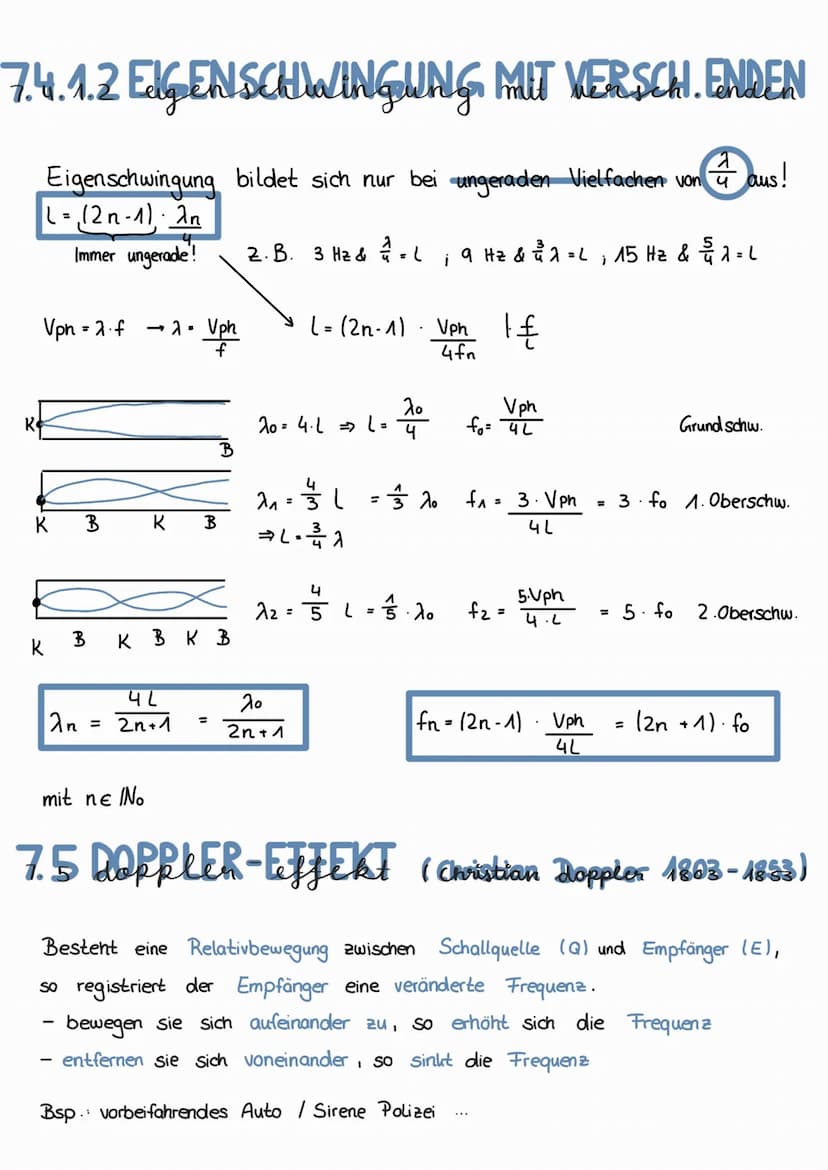 7.4.1.2 EIGENSCHWINGUNG MIT VERSCH. ENDEN
Eigenschwingung bildet sich nur bei ungeraden Vielfachen von λ/4 aus!
l = (2n-1) · λn/4
Immer ungerade!
z.B. 3 Hz & λ/4 = L ; 9 Hz & 3/4 λ = L ; 15 Hz & 5/4 λ = L
Vph = λ·f → λ = Vph/f
l = (2n-1) · Vph/4fn | f/l
K B
λ0 = 4·l ⇒ l = λ0/4 f0 = Vph/4L Grundschw.
K B K B
λ1 = 4/3 l = 1/3 λ0 f1 = 3·Vph/4L = 3·f0 1. Oberschw.
⇒ L = 3/4 λ
K B K B K B
λ2 = 4/5 l = 1/5 · λ0 f2 = 5·Vph/4·L = 5·f0 2. Oberschw.
λn = 4L/2n+1 = λ0/2n+1
fn = (2n-1) · Vph/4L = (2n+1)·f0
mit n ∈ ℕ0
7.5 DOPPLER-EFFEKT (Christian Doppler 1803-1853)
Besteht eine Relativbewegung zwischen Schallquelle (Q) und Empfänger (E),
so registriert der Empfänger eine veränderte Frequenz.
- bewegen sie sich aufeinander zu, so erhöht sich die Frequenz
- entfernen sie sich voneinander, so sinkt die Frequenz
Bsp.: vorbeifahrendes Auto / Sirene Polizei ...